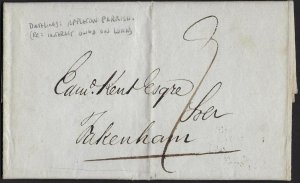 DATELINED: APPLETON PARRISH.
(RE: INTEREST OWED ON LOAN)
Edm. Kent Esqre
Solr
Fakenham